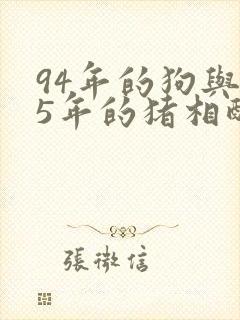 94年的狗與
5年的猪相
張微信